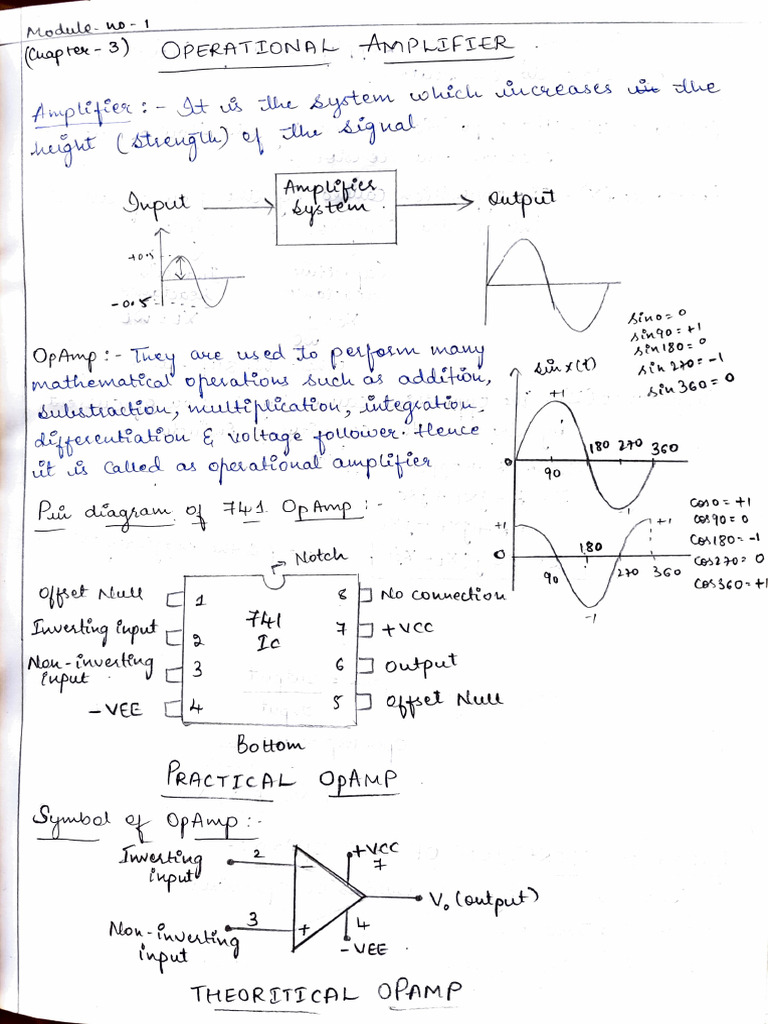 Module-no-1
(Chapter-3) OPERATIONAL AMPLIFIER.
Amplifier :- It is the system which increases in the
height (strength) of the signal
Input
Amplifier
System
Output
+0.5
-0.5
sin0=0
sin90=+1
sin180=0
sin270=-1
sin360=0
OpAmp :- They are used to perform many
mathematical operations such as addition,
substraction, multiplication, integration,
differentiation & voltage follower. Hence
it is called as operational amplifier
sin x(t)
+1
0
90
180 270 360
-1
Pin diagram of 741 OpAmp :-
+1
+1
0
90
180
270 360
-1
cos0=+1
cos90=0
cos180=-1
cos270=0
cos360=+1
Notch
Offset Null 1
8 No connection
741
Ic
Inverting input 2
7 +VCC
Non-inverting
input
3
6 output
-VEE 4
5 offset Null
Bottom
PRACTICAL OPAMP
Symbol of OpAmp :-
Inverting
input
2
-
+VCC
7
Vo (output)
Non-inverting
input
3
+
4
-VEE
THEORITICAL OPAMP